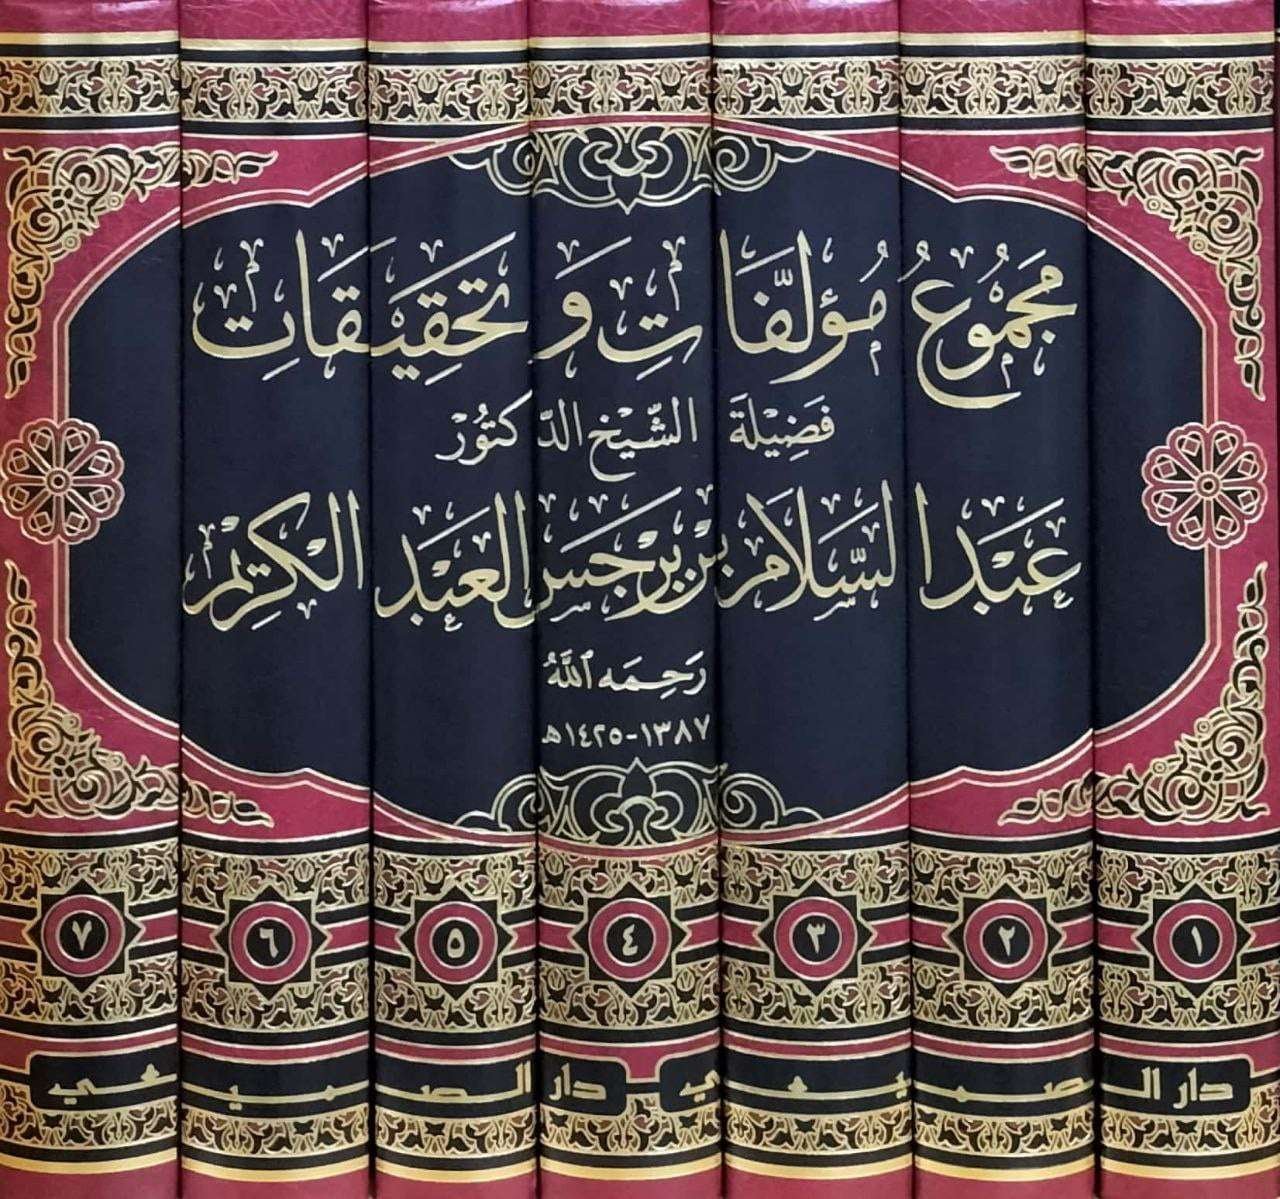 مَجْمُوعُ مُؤلَّفَاتِ وَتَحْقِيْقَاتِ
فَضِيْلَةَ الشَّيْخِ الدَّكْتُوْر
عَبْدِالسَّلَامِ بْنِ بَرْجَس العَبْدِ الكَرِيْمِ
رَحِمَه اللَّهُ
١٣٨٧-١٤٢٥هـ
١ ٢ ٣ ٤ ٥ ٦ ٧
دار الصميعي دار الصميعي